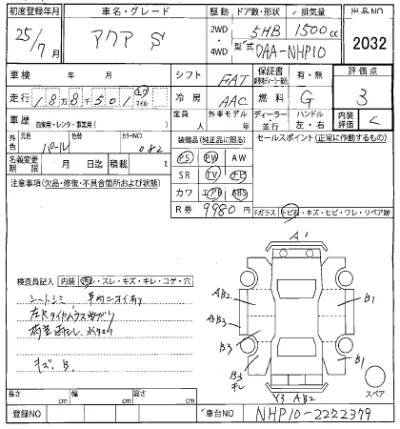 初度登録年月 車名・グレード 駆動 ドア数・形状 排気量 出品NO
25/7月 アクア S 2WD・4WD 5HB 1500cc 2032
型式 DAA-NHP10
車検 年 月 シフト FAT 保証書 有・無 評価点
走行 188501 マイル 冷房 AAC 燃料 G 3
車歴 自家用・レンタ・事業用( ) 定員 人 外車モデル 年 ディーラー・並行 ハンドル 左・右 内装評価 C
外色 元色 パール カラーNO 082 装備品(純正品に限る) セールスポイント(正常に作動するもの)
名義変更期限 月 日迄 積載 t PS PW AW
注意事項(欠品・修復・不具合箇所および状態) SR TV ナビ
カワ エアB ABS
R券 9980円 Fガラス トビ石・キズ・ヒビ・ワレ・リペア跡
A1
検査員記入 内装 ・スレ・キズ・キレ・コゲ・穴
シートシミ、車内ニオイ有
A2 B2
B1
A3 B2
B3
B1
キズ、B
B3
キレ
Y3 A B2
スペア
長さ cm 幅 cm 高さ cm
登録NO 車台NO NHP10-2222379